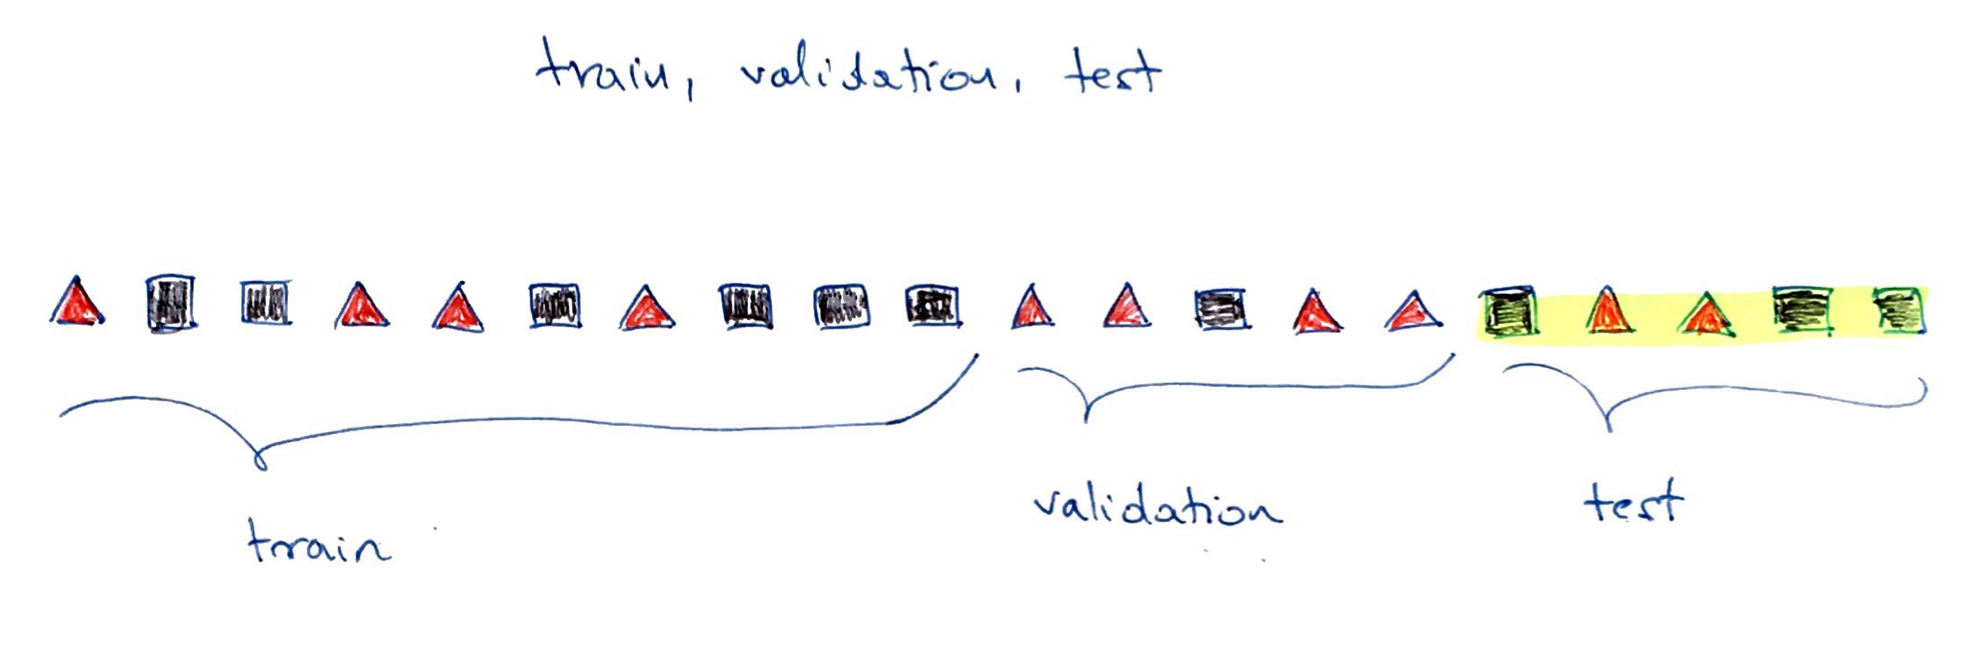 train, validation, test
train
validation
test